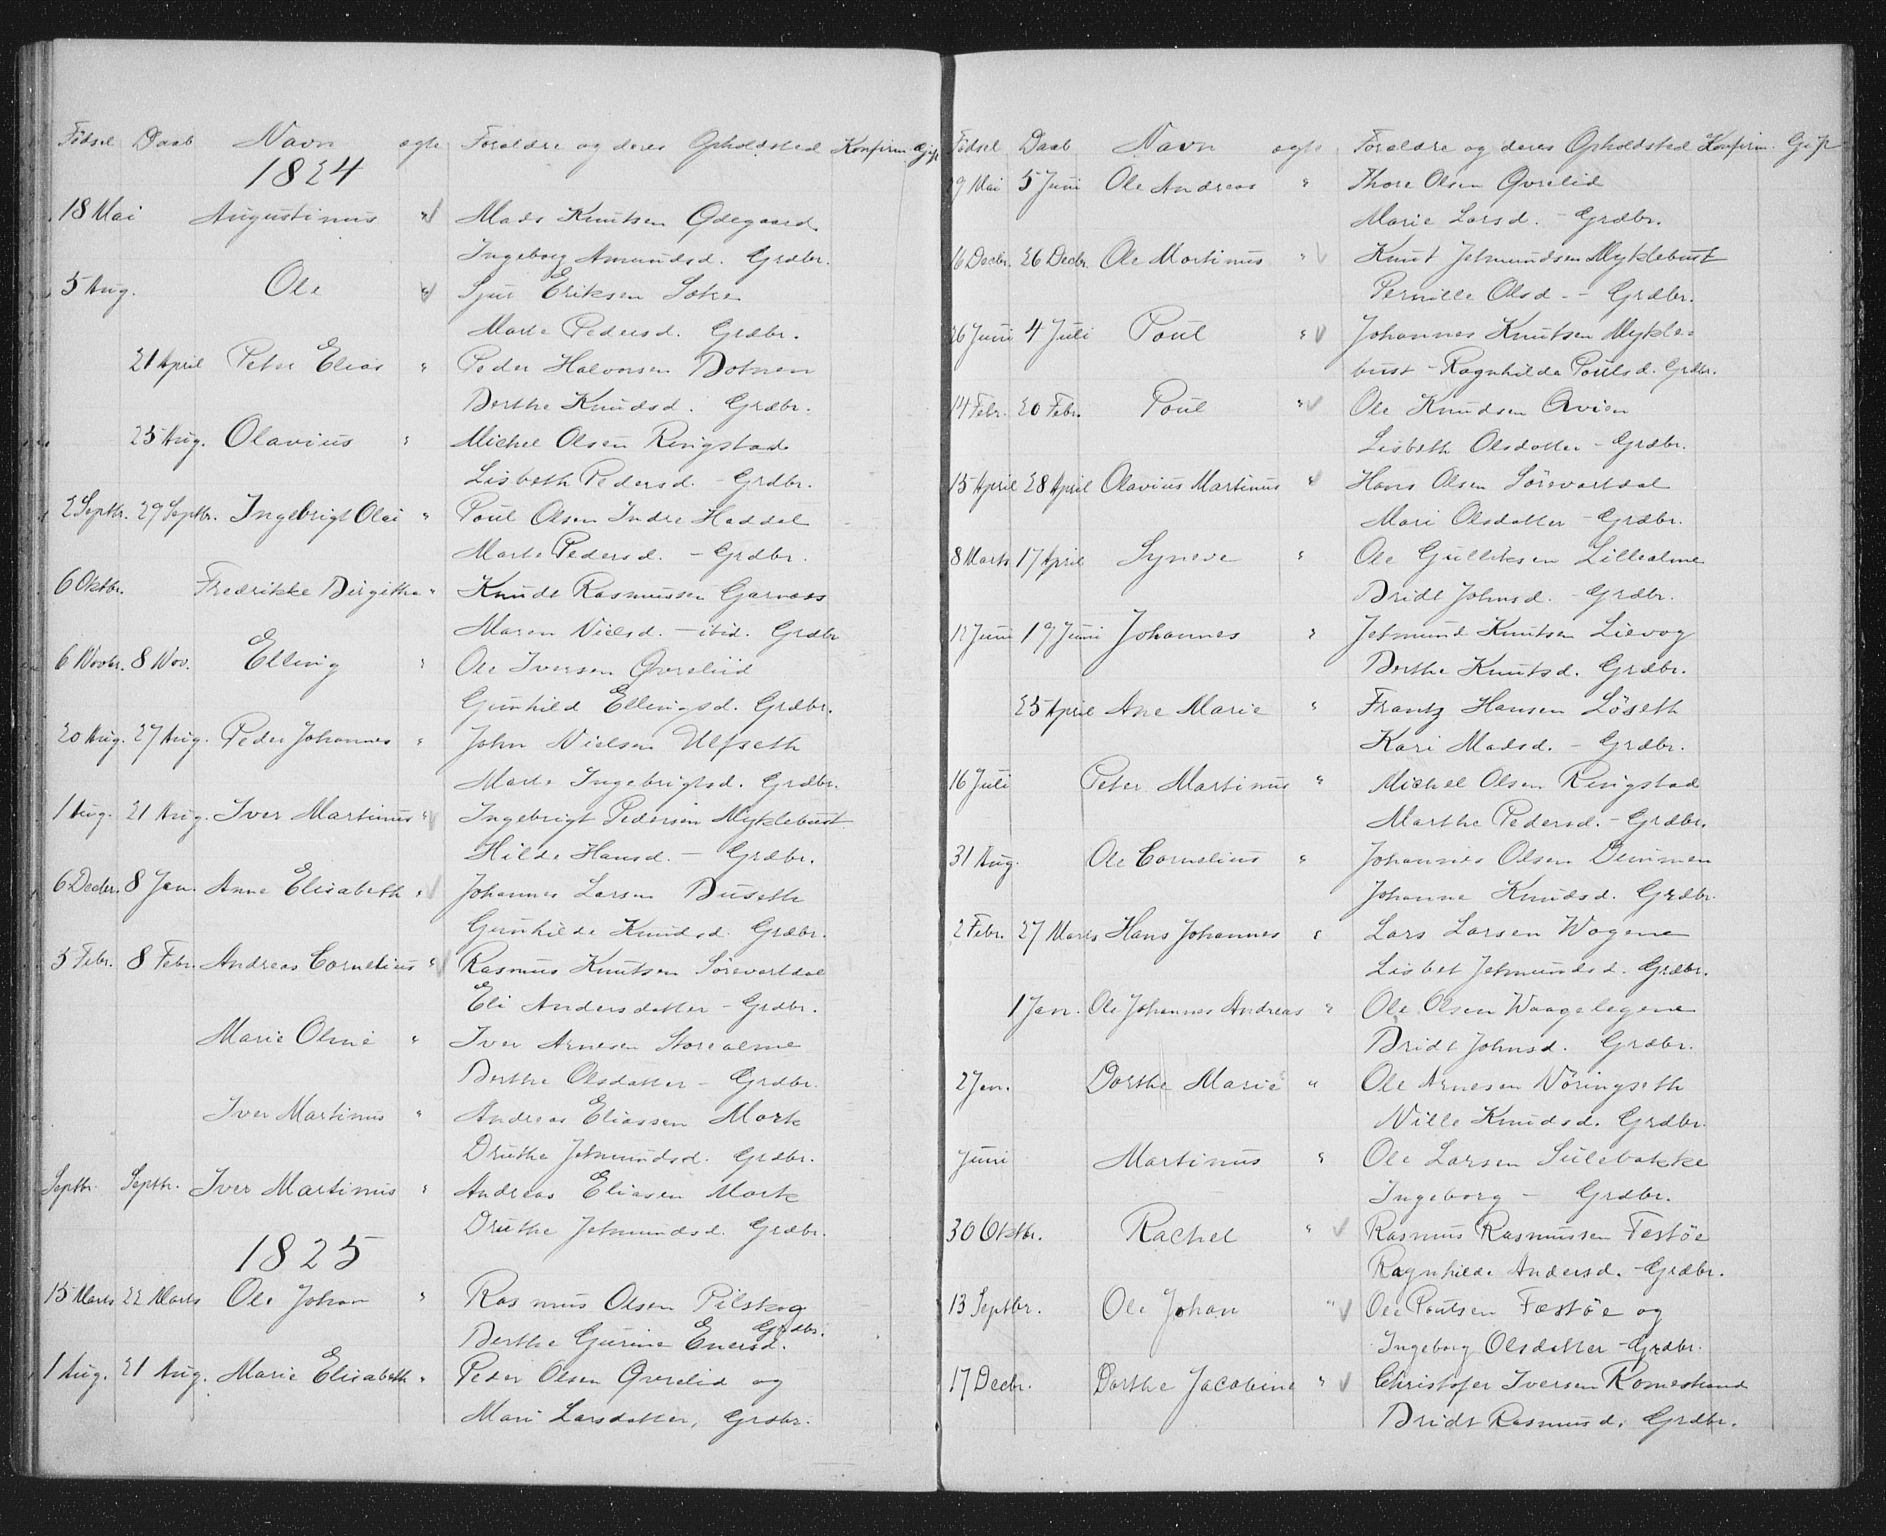 Fødsel Daab Navn ægte Forældre og deres Opholdsted Konfirm. Gift
1824
18 Mai Augustinus " Mads Knutsen Ødegaard
Ingeborg Amundsd. Grdbr.
5 Aug. Ole " Sjur Eriksen Sætre
Marte Pedersd. Grdbr.
21 April Peter Elias " Peder Halvorsen Botnen
Berthe Knudsd. Grdbr.
25 Aug. Olavius " Michel Olsen Ringstad
Lisbeth Pedersd. - Grdbr.
2 Septbr. 29 Septbr. Ingebrigt Olai " Poul Olsen Indre Haddal
Marte Pedersd. - Grdbr.
6 Oktbr. Fredrikke Birgitha " Knudt Rasmussen Garnæs
Maren Nielsd. - ibid. Grdbr
6 Novbr. 8 Nov. Elling " Ole Iversen Øvreliid
Gunhild Ellingsd. Grdbr.
20 Aug. 27 Aug. Peder Johannes " John Nielsen Ulfseth
Marte Ingebrigtsd. Grdbr.
1 Aug. 21 Aug. Iver Martinus " Ingebrigt Pedersen Myklebust
Hilde Hansd. - Grdbr.
6 Decbr. 8 Jan. Anne Elisabeth " Johannes Larsen Buseth
Gunhilde Knudsd. Grdbr.
5 Febr. 8 Febr. Andreas Cornelius " Rasmus Knutsen Sörevartdal
Eli Andersdatter - Grdbr.
Marie Oline " Iver Arnesen Storealme
Berthe Olsdatter - Grdbr.
Iver Martinus " Andreas Eliassen Mork
Druthe Jetmundsd. Grdbr.
Septbr. Septbr. Iver Martinus " Andreas Eliasen Mork
Druthe Jetmundsd. Grdbr.
1825
15 Marts 22 Marts Ole Johan " Rasmus Olsen Pilskog
Grdbr.
Berthe Gurine Enersd.
1 Aug. 21 Aug. Marie Elisabeth " Peder Olsen Øvrelid og
Mari Larsdatter, Grdbr.
Fødsel Daab Navn ægte Forældre og deres Opholdsted Konfirm. Gift
19 Mai 5 Juni Ole Andreas " Thore Olsen Øvrelid
Marie Larsd. - Grdbr.
16 Decbr. 26 Decbr. Ole Martinus " Knut Jetmundsen Myklebust
Pernille Olsd - - Grdbr.
26 Juni 4 Juli Poul " Johannes Knutsen Mykle-
bust - Ragnhilde Poulsd. Grdbr.
14 Febr. 20 Febr. Poul " Ole Knudsen Qvien
Lisbeth Olsdatter - Grdbr.
15 April 28 April Olavius Martinus " Hans Olsen Sörevartdal
Mari Olsdatter - Grdbr.
8 Marts 17 April Syneve " Ole Gulliksen Lillealme
Bridt Johnsd. - Grdbr.
12 Juni 19 Juni Johannes " Jetmund Knutsen Lievog
Berthe Knutsd. Grdbr.
25 April Ane Marie " Frantz Hansen Löseth
Kari Madsd. - Grdbr.
16 Juli Peter Martinus " Michel Olsen Ringstad
Marthe Pedersd. - Grdbr.
31 Aug. Ole Cornelius " Johannes Olsen Dimmen
Johanne Knudsd. Grdbr.
2 Febr. 27 Marts Hans Johannes " Lars Larsen Wogene
Lisbet Jetmundsd. Grdbr.
1 Jan. Ole Johannes Andreas " Ole Olsen Waagelegene
Bridt Johnsd. Grdbr.
2 Jan. Dorthe Marie " Ole Arnesen Nöringseth
Nille Knudsd. Grdbr.
Juni Martinus " Ole Larsen Sulebakke
Ingeborg - Grdbr.
30 Oktbr. Rachel " Rasmus Rasmussen Festöe
Ragnhilde Andersd. - Grdbr.
13 Septbr. Ole Johan " Ole Poulsen Fæstöe og
Ingeborg Olsdatter - Grdbr.
17 Decbr. Dorthe Jacobine " Christofer Iversen Romestrand
Bridt Rasmusd. Grdbr.